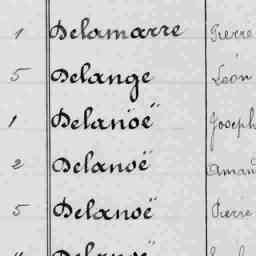 1 Delamarre Pierre
5 Delange Léon
1 Delanoë Joseph
2 Delanoë Amand
5 Delanoë Pierre
Delanoë